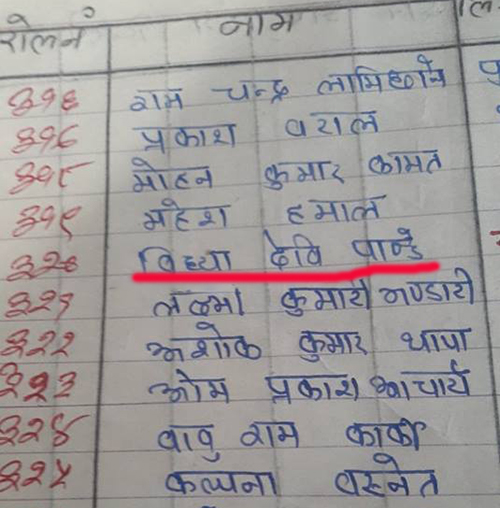 रोलनं नाम
३१६ राम चन्द्र लामिछाने
३१७ प्रकाश वराल
३१८ मोहन कुमार कामत
३१९ महेश हमाल
३२० विध्या देवि पाण्डे
३२१ लक्ष्मी कुमारी भण्डारी
३२२ अशोक कुमार थापा
३२३ ओम प्रकाश आचार्य
३२४ वावु राम कार्की
३२५ कल्पना वस्नेत